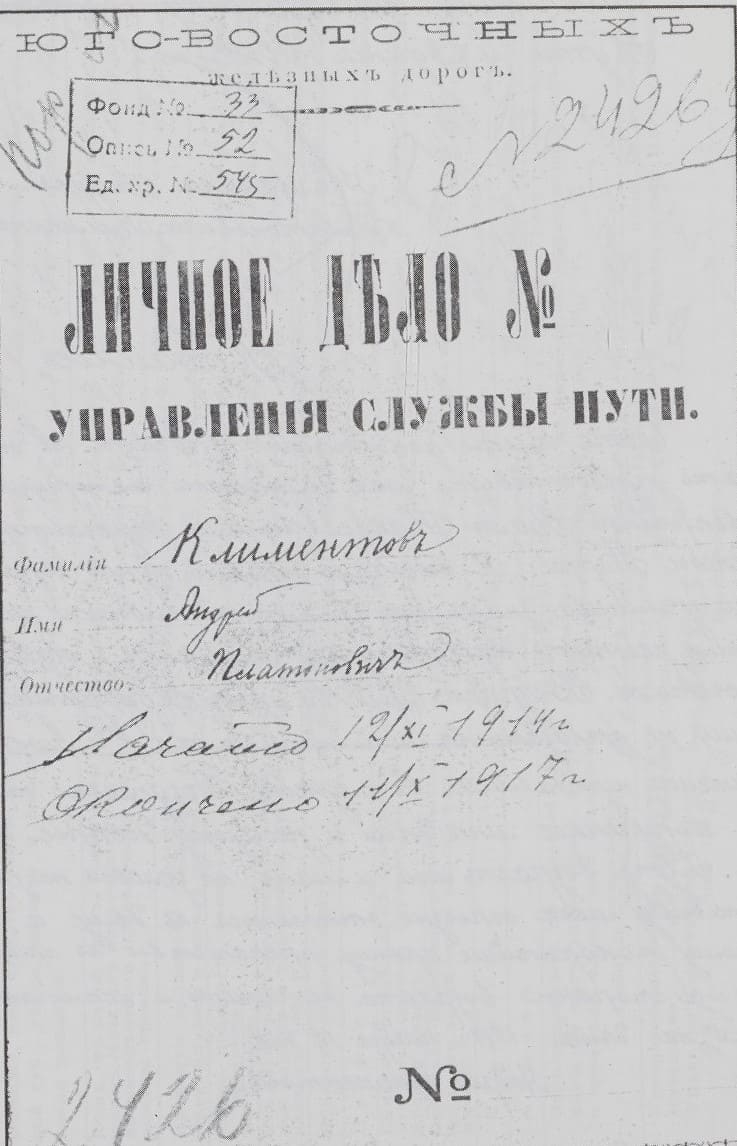 ЮГО-ВОСТОЧНЫХЪ
желѣзныхъ дорогъ.
Фонд № 33
Опись № 52
Ед. хр. № 545
№ 2426
ЛИЧНОЕ ДѢЛО №
УПРАВЛЕНІЯ СЛУЖБЫ ПУТИ.
Фамилія Климентовъ
Имя Андрей
Отчество Платоновичъ
Начато 12/XI 1914 г
Окончено 11/X 1917 г
2426
№